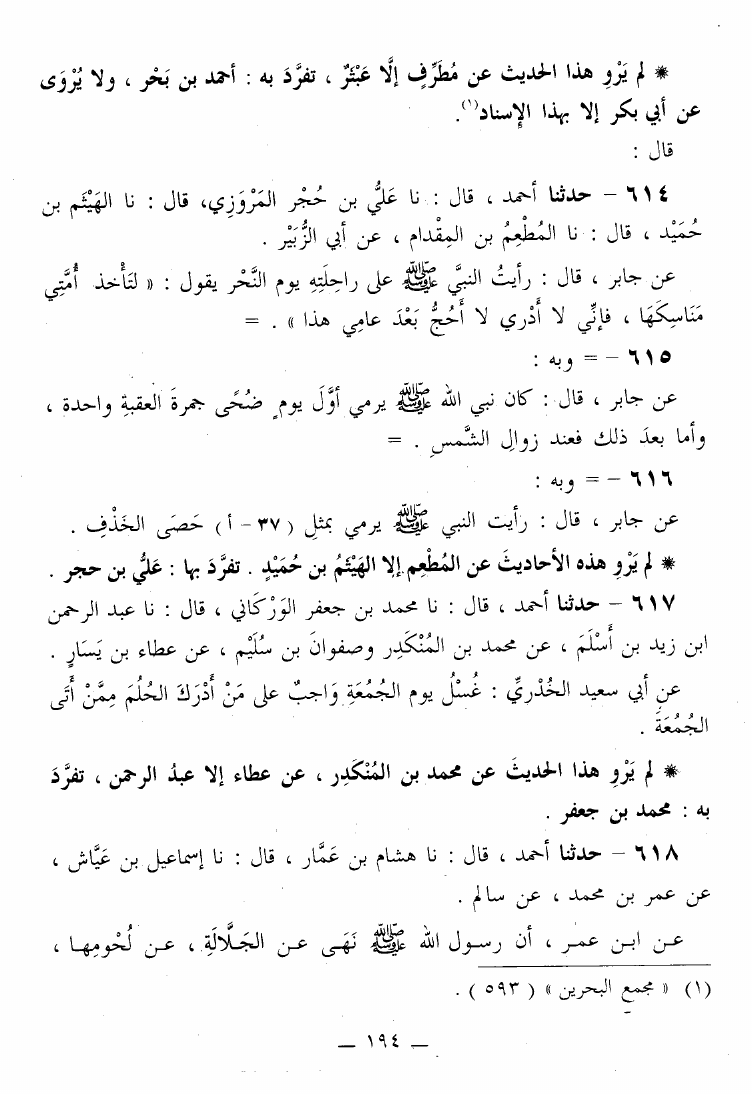 * لم يَرْوِ هذا الحديث عن مُطَرِّفٍ إلَّا عَبْثَرٌ ، تفرَّدَ به : أحمد بن بَحْر ، ولا يُرْوَى
عن أبي بكر إلا بهذا الإسناد(١).
قال :
٦١٤ – حدثنا أحمد ، قال : نا عَليُّ بن حُجْر المَرْوَزِي، قال : نا الهَيْثَم بن
حُمَيْد ، قال : نا المُطْعِمُ بن المِقْدام ، عن أبي الزُّبَيْر .
عن جابر ، قال : رأيتُ النبيَّ ﷺ على راحِلَتِهِ يوم النَّحْر يقول : « لتَأْخذ أُمَّتِي
مَنَاسِكَهَا ، فإنِّي لا أَدْري لا أَحُجُّ بَعْدَ عامِي هذا » . =
٦١٥ – = وبه :
عن جابر ، قال : كان نبي الله ﷺ يرمي أوَّلَ يومٍ ضُحًى جمرةَ العقبةِ واحدة ،
وأما بعدَ ذلك فعند زوالِ الشَّمسِ . =
٦١٦ – = وبه :
عن جابر ، قال : رأيت النبي ﷺ يرمي بمثلِ (٣٧ – أ) حَصَى الخَذْفِ .
* لم يَرْوِ هذه الأحاديثَ عن المُطْعِم إلا الهَيْثَمُ بن حُمَيْدٍ . تفرَّدَ بها : عَليُّ بن حجر .
٦١٧ – حدثنا أحمد ، قال : نا محمد بن جعفر الوَرْكاني ، قال : نا عبد الرحمن
ابن زيد بن أَسْلَمَ ، عن محمد بن المُنْكَدِر وصفوانَ بن سُلَيْم ، عن عطاء بن يَسَارٍ .
عن أبي سعيد الخُدْريِّ : غُسْلُ يوم الجُمُعَةِ وَاجبٌ على مَنْ أَدْرَكَ الحُلُمَ مِمَّنْ أَتَى
الجُمُعَةَ .
* لم يَرْوِ هذا الحديثَ عن محمد بن المُنْكَدِر ، عن عطاء إلا عبدُ الرحمن ، تفرَّدَ
به : محمد بن جعفر .
٦١٨ – حدثنا أحمد ، قال : نا هشام بن عَمَّار ، قال : نا إسماعيل بن عَيَّاش ،
عن عمر بن محمد ، عن سالم .
عن ابن عمر ، أن رسول الله ﷺ نَهَى عن الجَلَّالَةِ ، عن لُحُومِها ،
(١) « مجمع البحرين » ( ٥٩٣ ) .
– ١٩٤ –